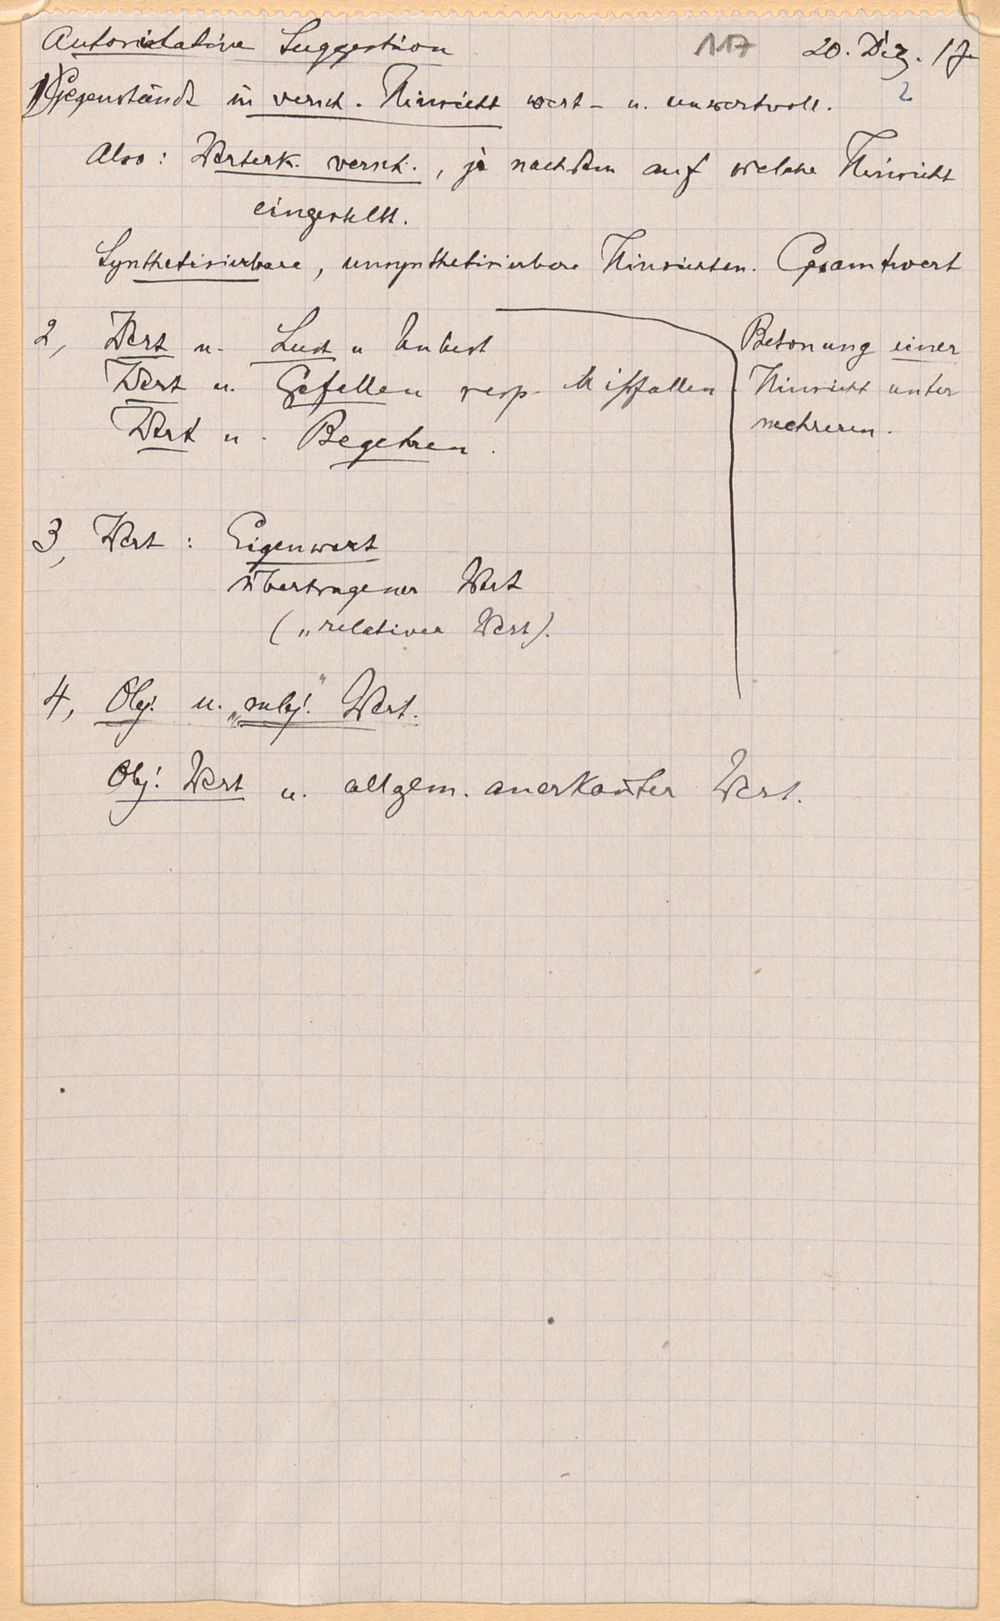 Autoritative Suggestion 117 20. Dez. 17
2
1) Gegenstände in versch. Hinsicht wert- u. unwertvoll.
Also: Werterk. versch., je nachdem auf welche Hinsicht
eingestellt.
Synthetisierbare, unsynthetisierbare Hinsichten. Gesamtwert
2, Wert u. Lust u Unlust
Wert u. Gefallen resp. Mißfallen
Wert u. Begehren.
Betonung einer
Hinsicht unter
mehreren.
3, Wert: Eigenwert
übertragener Wert
(„relativer Wert).
4, Obj. u. „subj." Wert.
Obj. Wert u. allgem. anerkan̄ter Wert.